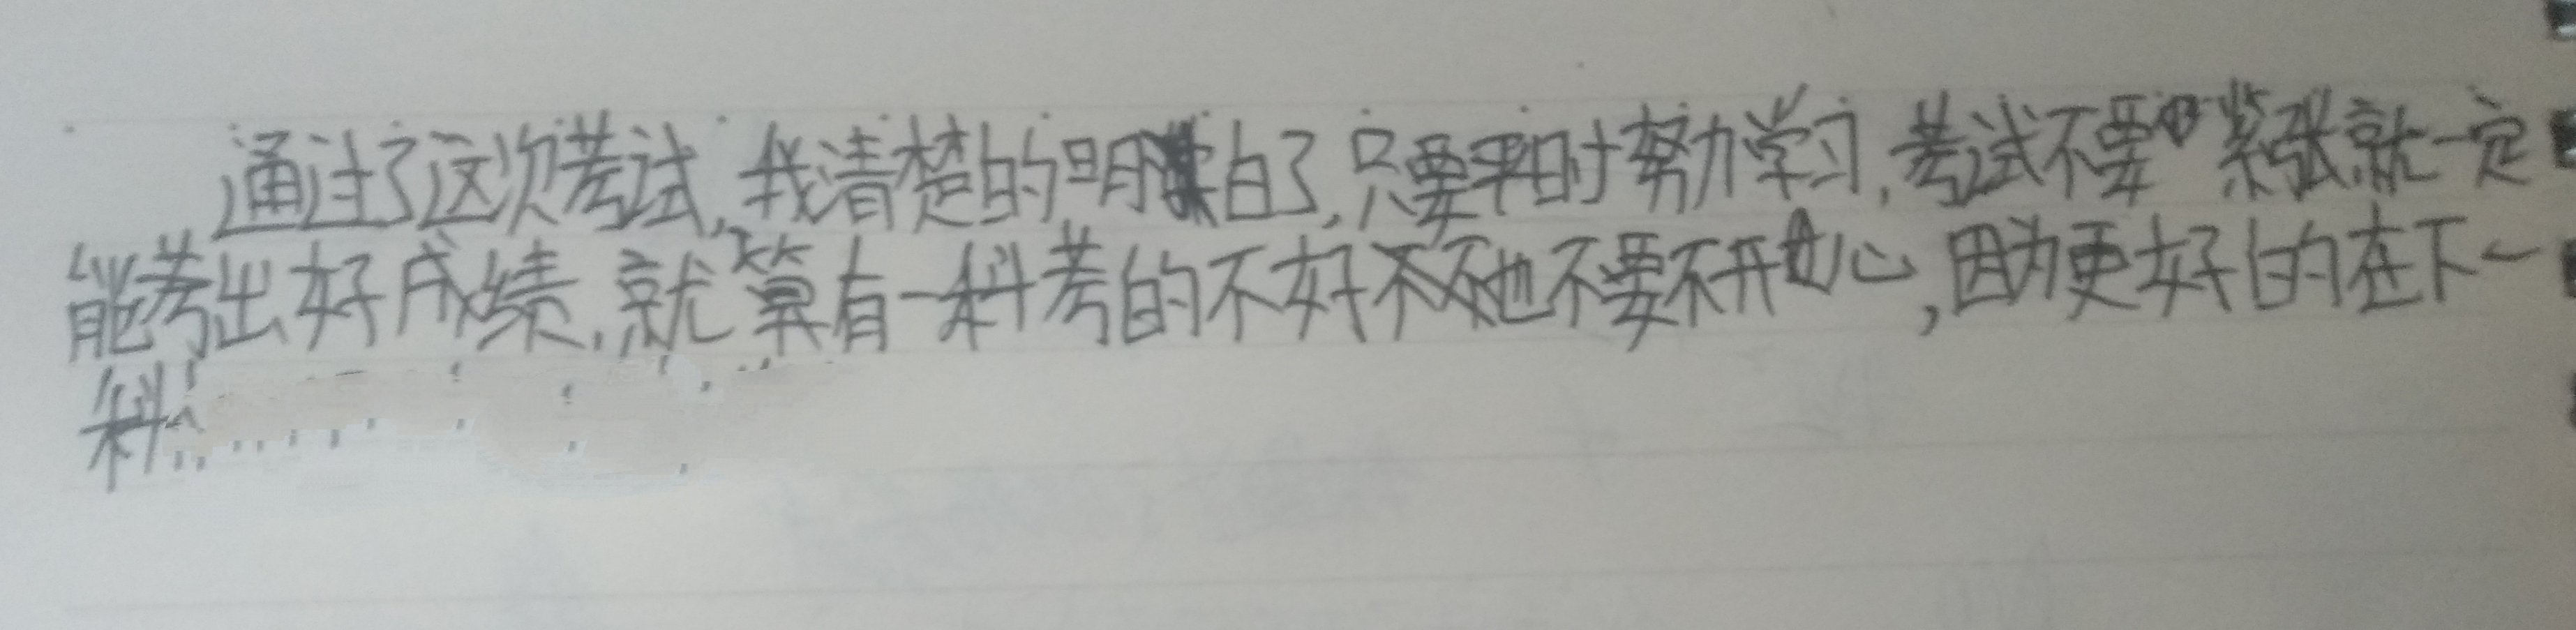 通过了这次考试,我清楚的明白了,只要平时努力学习,考试不要紧张就一定
能考出好成绩,就算有一科考的不好也不要不开心,因为更好的在下一
科